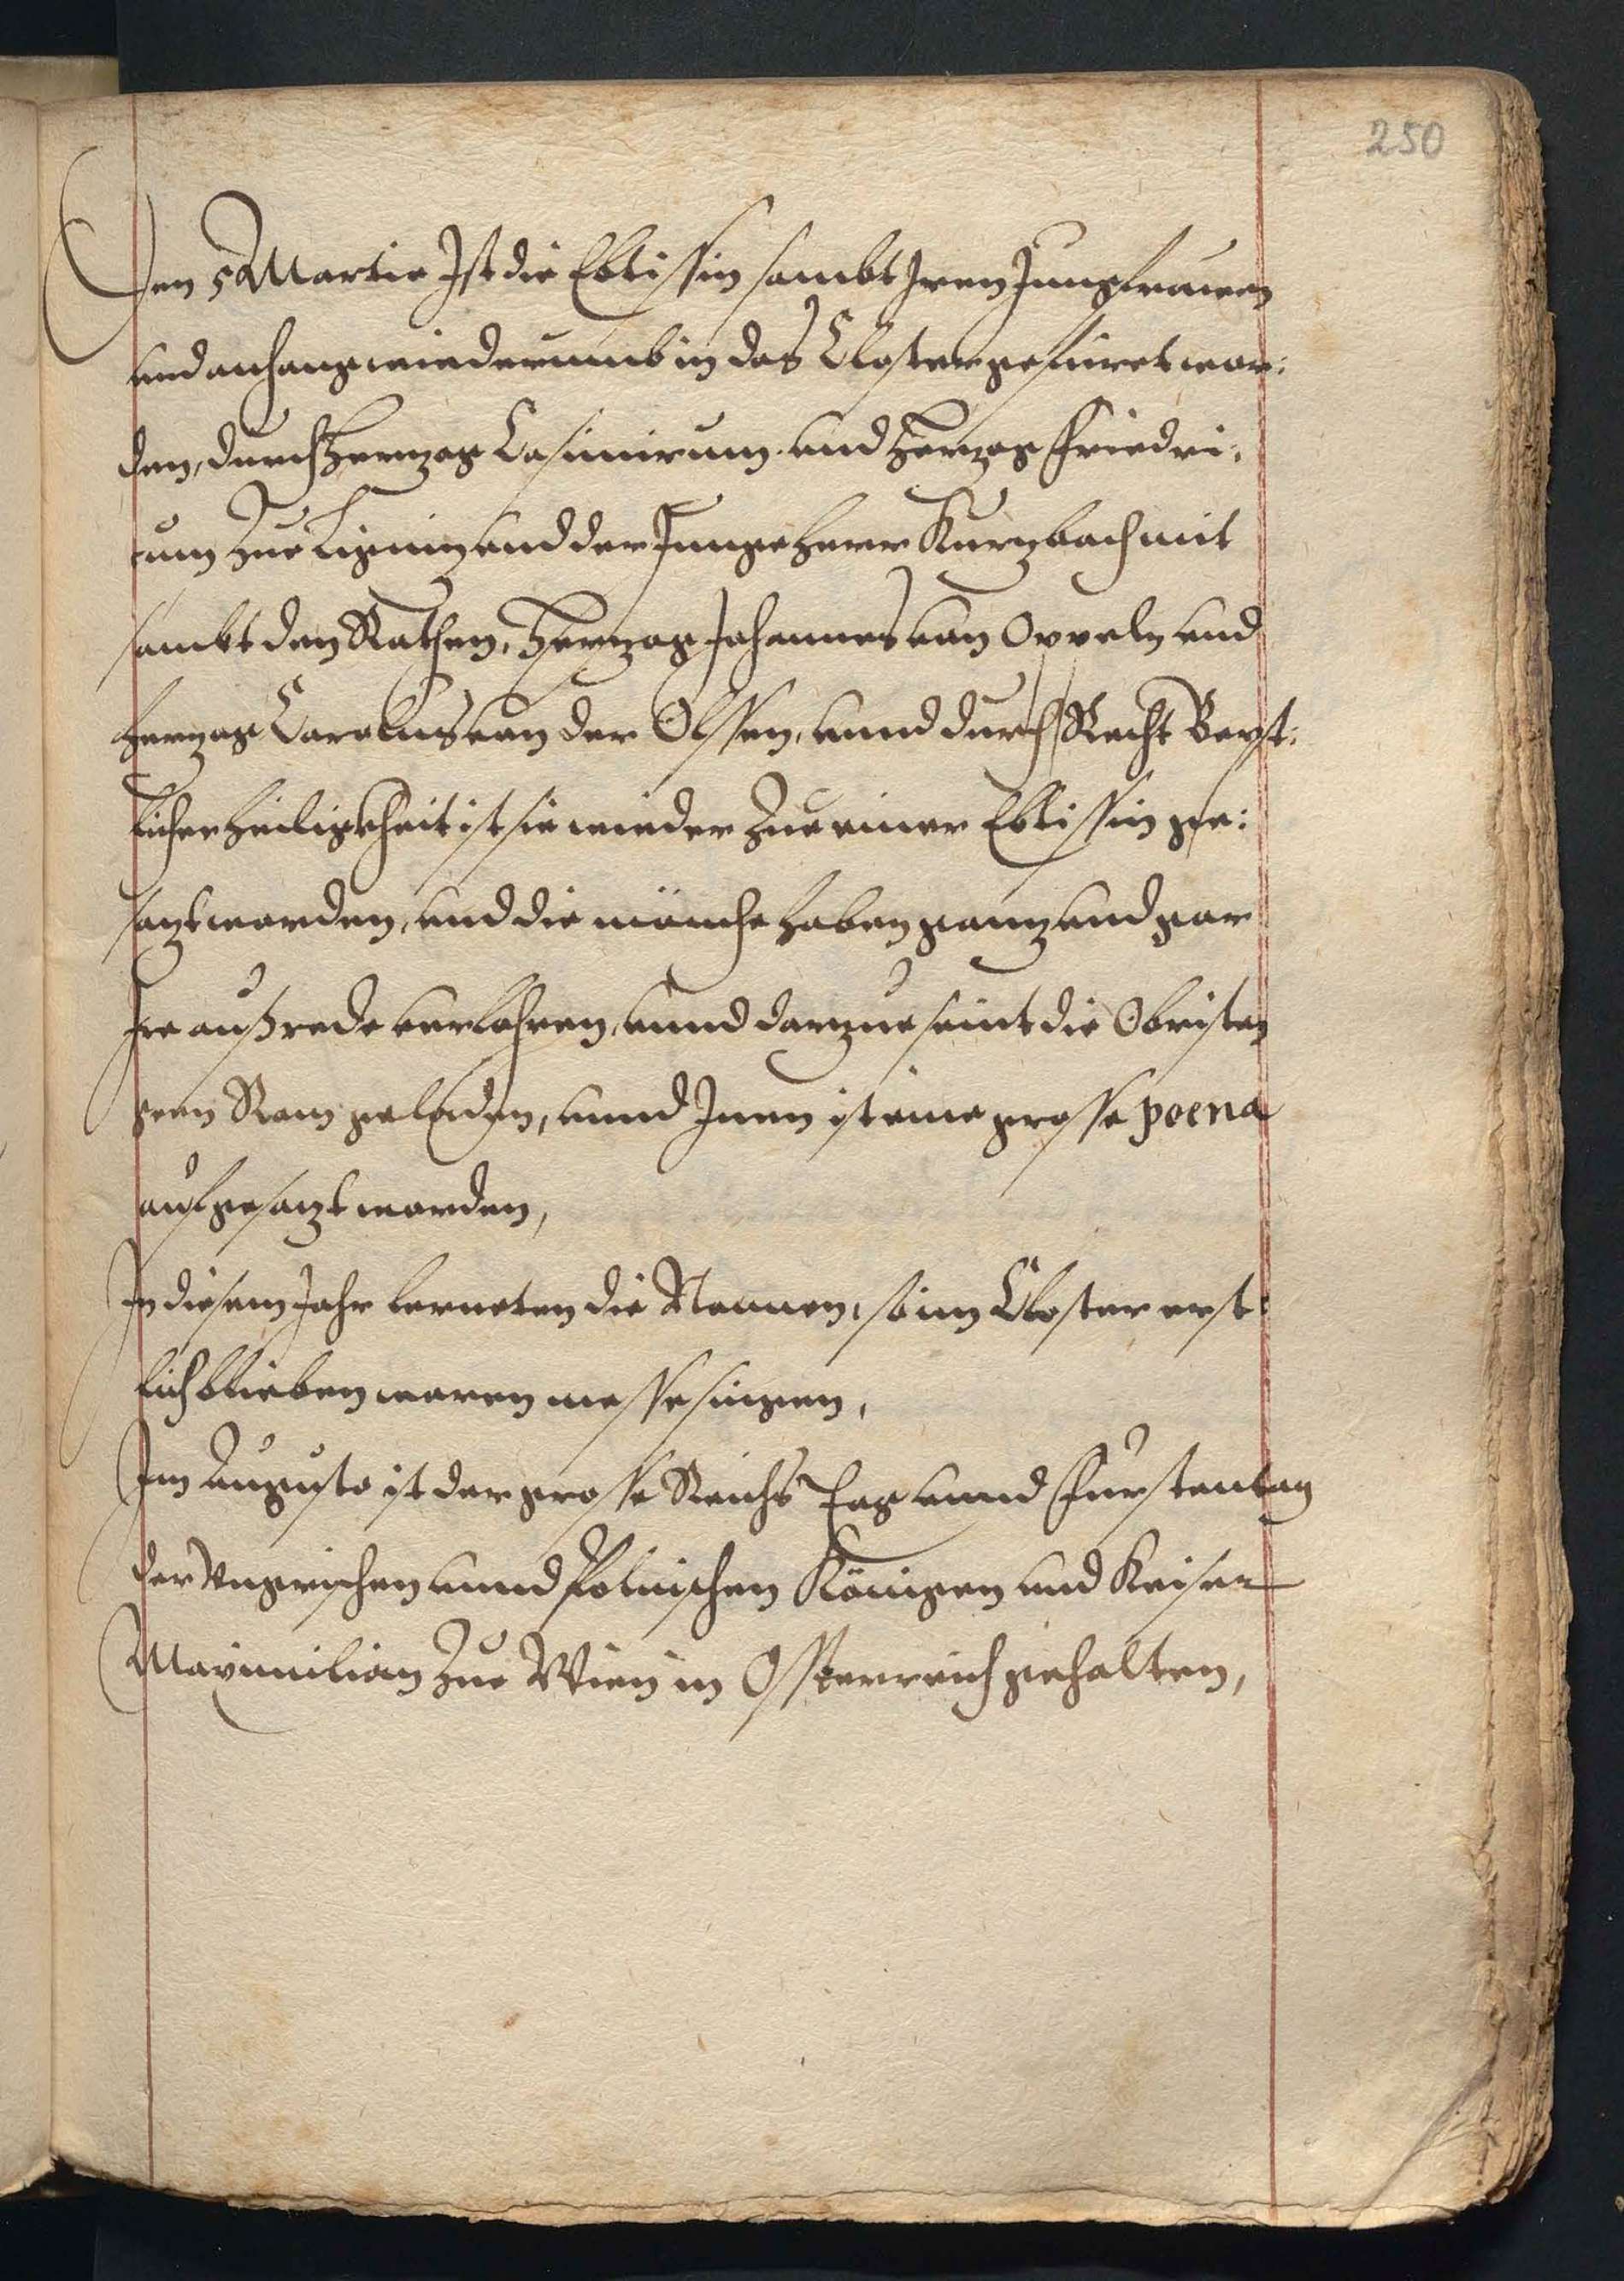 250
Den 5 Martie Ist die Ebtissin sambt Iren Jungfrauen
und anhang wiederumb in das Closter gefuret wor:
den, durch Hertzog Casimirum und Hertzog Friedri:
cum Zue Lignitz und der Junge herr Kurzbach mit
sambt den Rathen, Hertzog Johannes von Oppeln und
hertzog Carolus von der Olssen, unnd durch Recht Bepst:
licher heiligkheit ist sie wieder Zue einer Ebtissin ge:
satzt worden, und die mönche haben gantz und gar
Ire ausrede verlohren, unnd dartzue seint die Obristen
gen Rom geladen, unnd Inen ist eine grosse poena
aufgesatzt worden,
In diesem Jahr lerneten die Nonnen, so im Closter erst:
lich blieben waren messe singen,
Im Augusto ist der grosse Reichs Tag unnd Furstentag
der Ungrischen unnd Polnischen Königen und Keiser
Maximilian Zue Wien in Ossterreich gehalten,